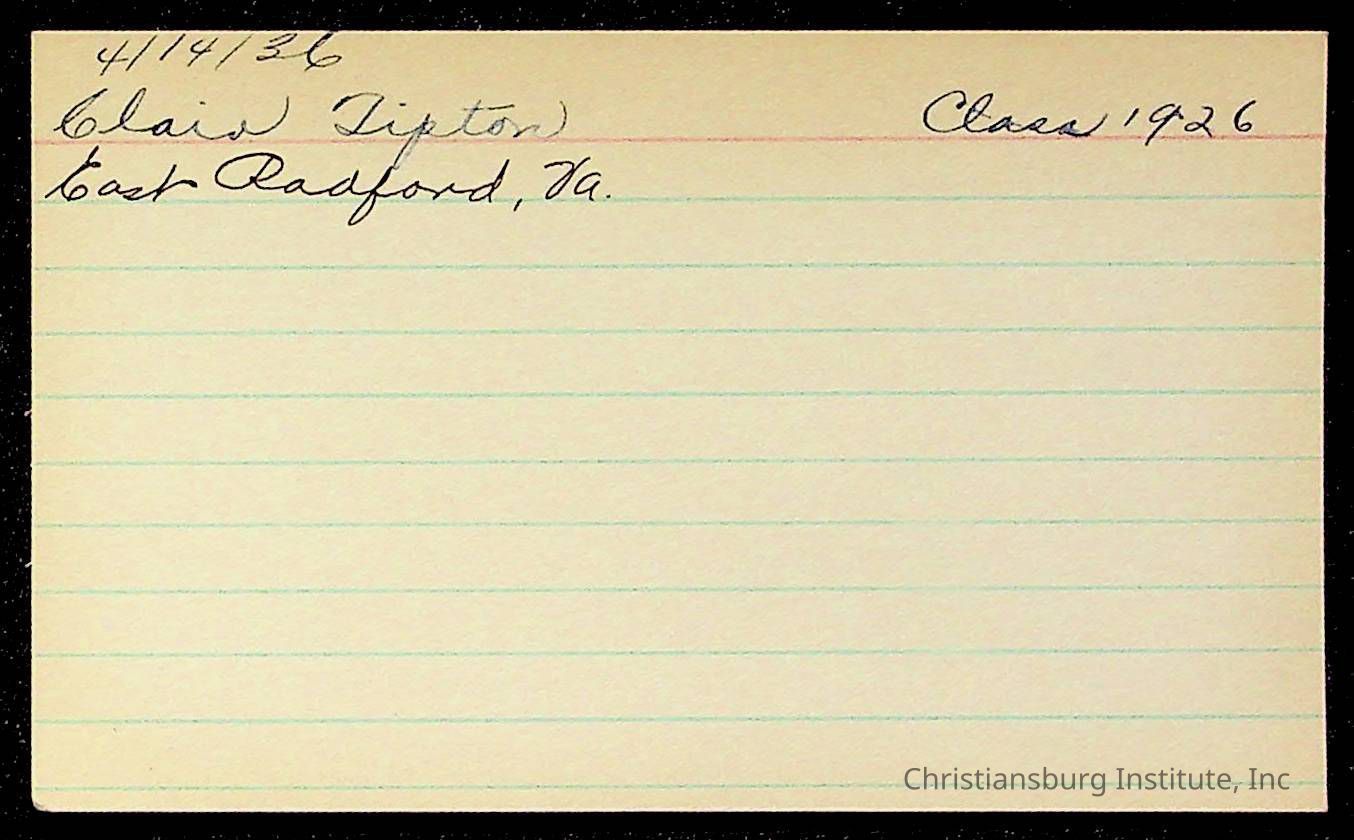 4/14/36
Clair Tipton Class 1926
East Radford, Va.
Christiansburg Institute, Inc